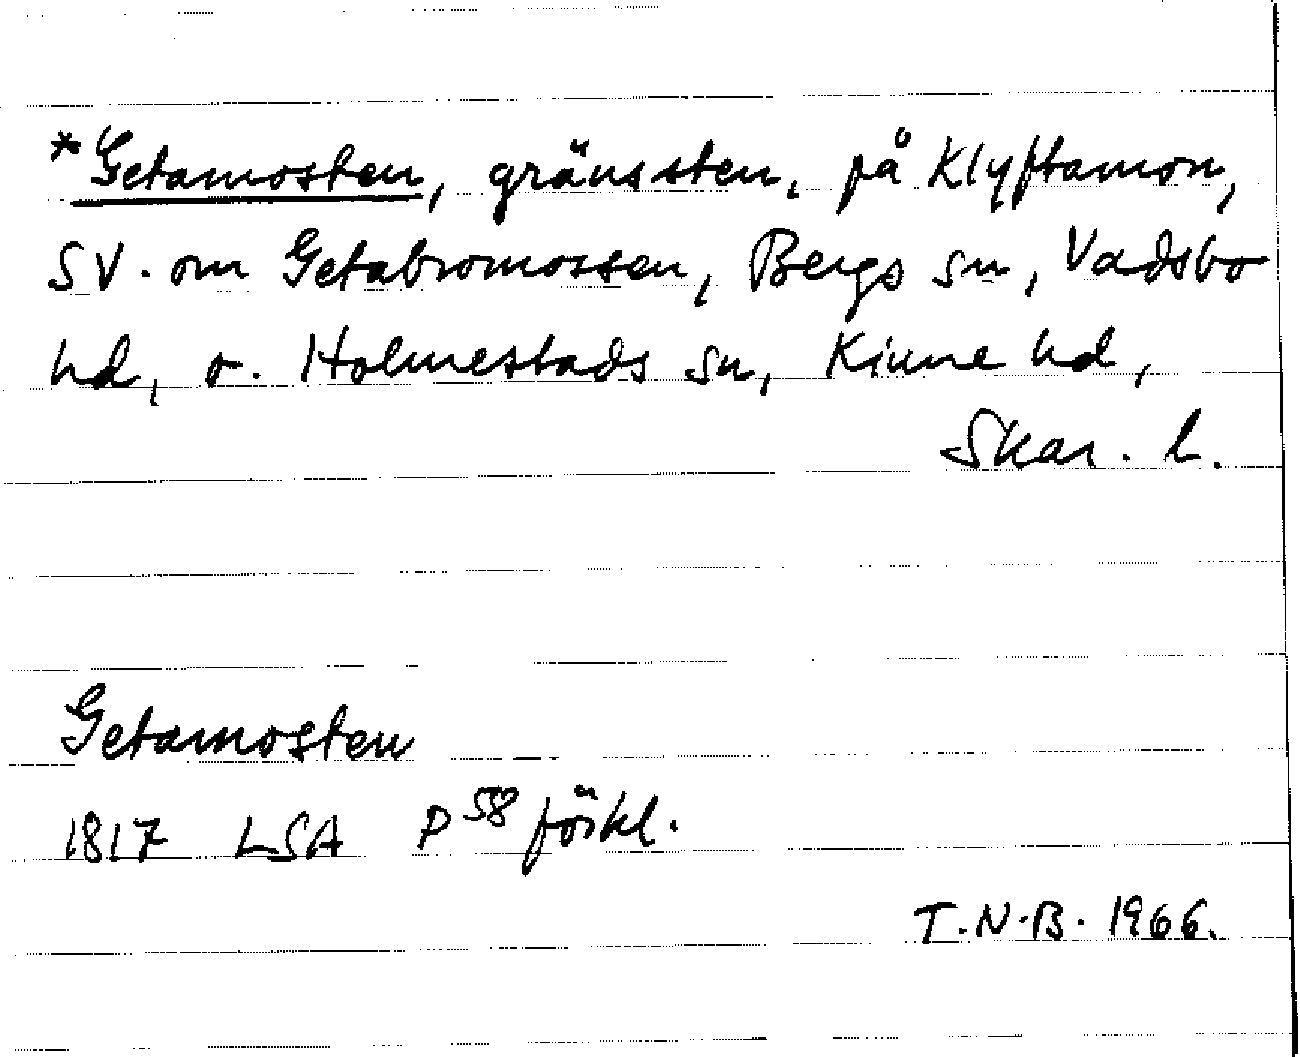 *Getamosten, gränssten, på Klyftamon,
SV. om Getabromossen, Bergs sn, Vadsbo
hd, o. Holmestads sn, Kinne hd,
Skar. l.
Getamosten
1817 LSA P58 förkl.
T.N.B. 1966.